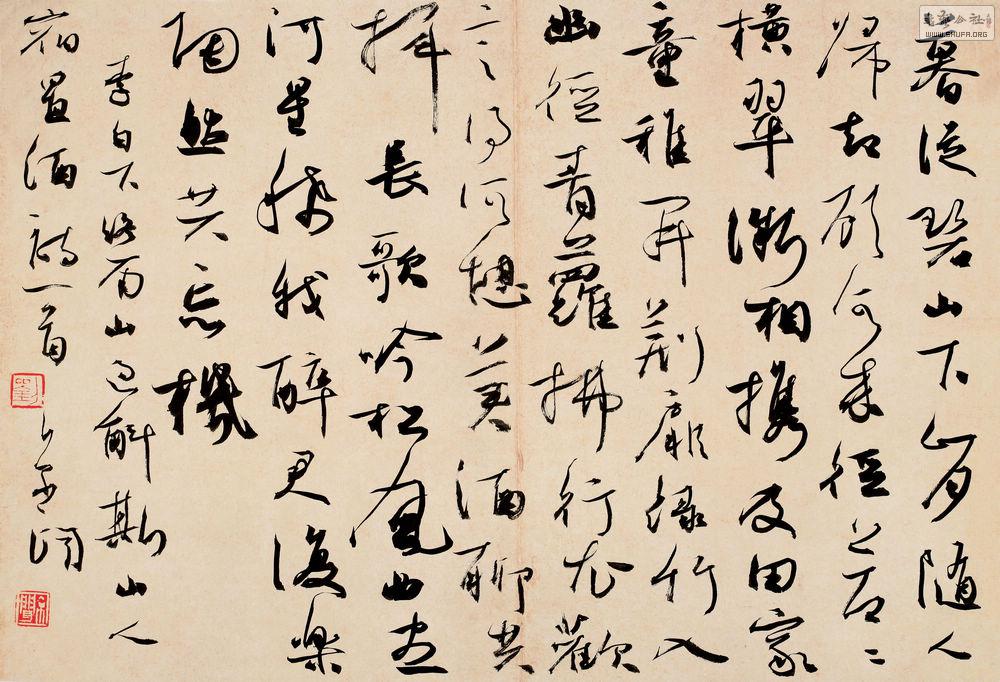 暮從碧山下山月随人
歸却顧所来徑蒼〻
横翠漸相携及田家
童稚開荆扉緑竹入
幽徑青蘿拂行衣歡
言得所憩美酒聊共
揮長歌吟松風曲盡
河星稀我醉君復樂
陶然共忘機
李白下终南山過斛斯山人
宿置酒詩一首
劉
WWW.SHUFA.ORG